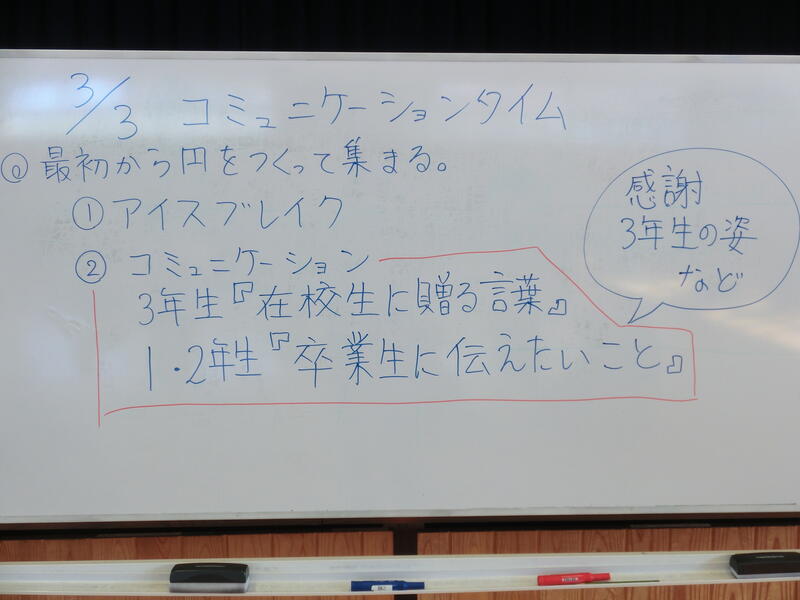 3/3 コミュニケーションタイム
◎最初から円をつくって集まる。
①アイスブレイク
②コミュニケーション
3年生『在校生に贈る言葉』
1・2年生『卒業生に伝えたいこと』
感謝
3年生の姿
など